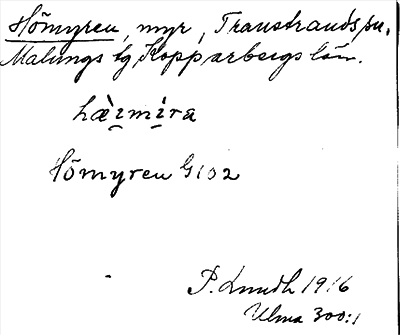 Hömyren, myr, Transtrands sn.
Malungs tg Kopparbergs län.
hæ̀ımıra
Hömyren G 102
P. Lundh 1916
Ulma 300:1